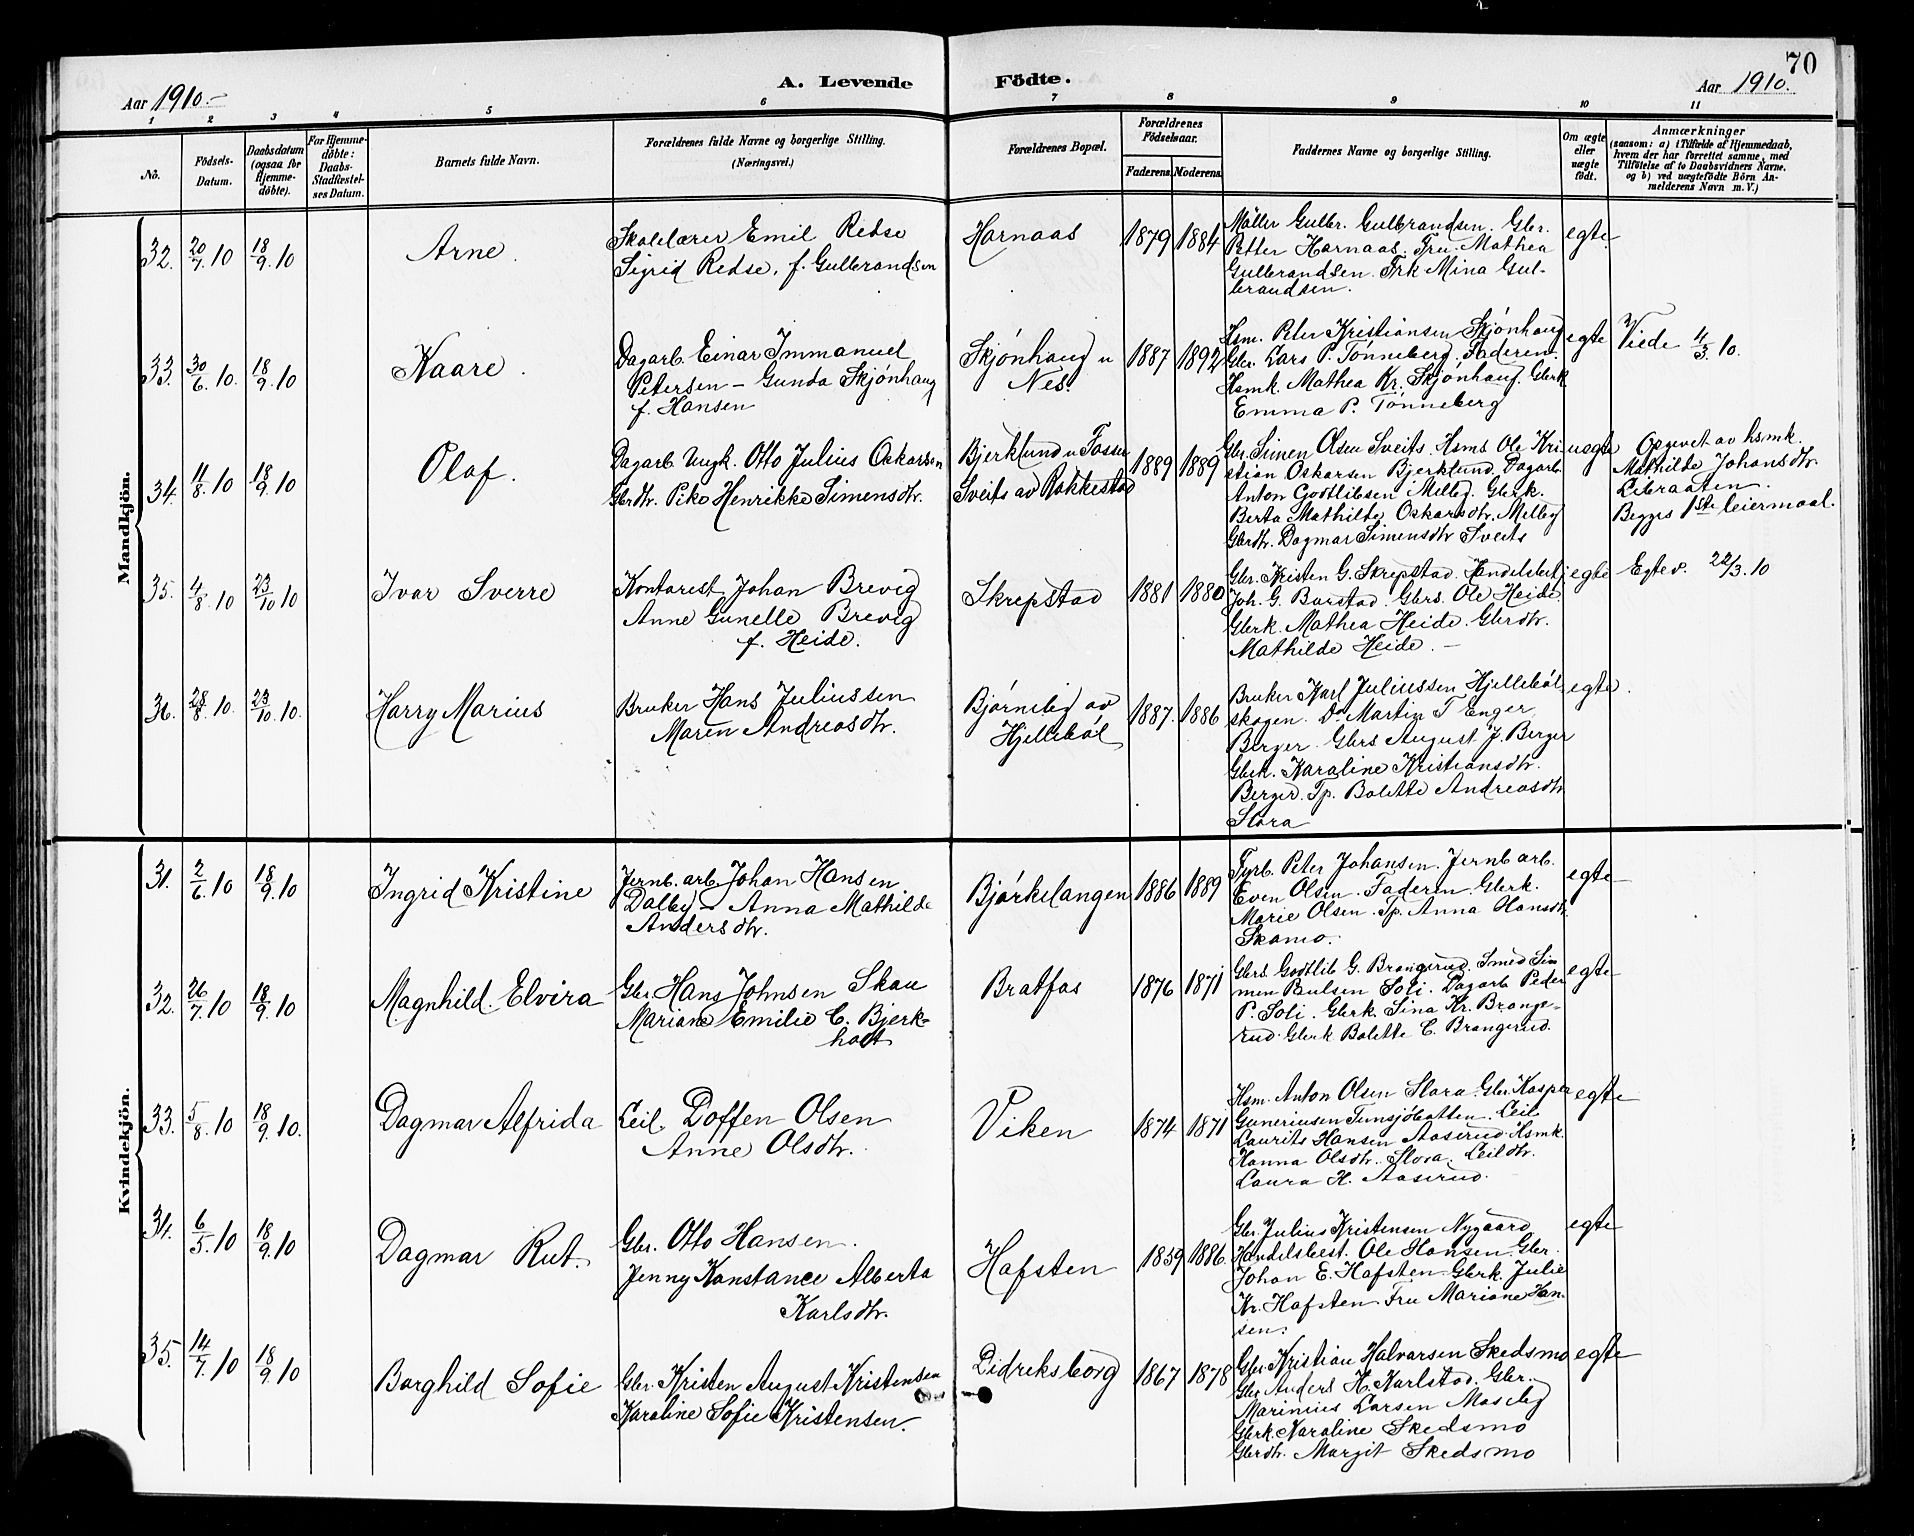 70
Aar 1910.
A. Levende Födte.
Aar 1910.
1 2 3 4 5 6 7 8 9 10 11
No.
Födsels-Datum.
Daabsdatum (ogsaa for Hjemme-döbte).
For Hjemme-döbte: Daabs-Stadfæstel-ses Datum.
Barnets fulde Navn.
Forældrenes fulde Navne og borgerlige Stilling.
(Næringsvei.)
Forældrenes Bopæl.
Forældrenes Födselsaar.
Faderens. Moderens.
Faddernes Navne og borgerlige Stilling.
Om ægte eller uægte födt.
Anmærkninger
(saasom: a) i Tilfælde af Hjemmedaab, hvem der har forrettet samme, med Tilföielse af to Daabsvidners Navne, og b) ved uægtefödte Börn An-melderens Navn m. V.)
Mandkjön.
32. 20/7.10 18/9.10 Arne.
Skolelærer Emil Redse
Sigrid Redse, f. Gulbrandsen
Harnaas
1879 1884
Møller Gulbr. Gulbrandsen. Gbr.
Petter Harnaas. Fru Mathea
Gulbrandsen. Frk Mina Gul-
brandsen.
egte.
33. 30/6.10. 18/9.10 Kaare.
Dagarb. Einar Immanuel
Petersen – Gunda Skjønhaug
f. Hansen
Skjønhaug u
Nes.
1887 1892
Hsm. Peter Kristiansen Skjønhaug
Gbr. Lars P. Tønneberg. Faderen.
Hsmk. Mathea Kr. Skjønhaug. Gbrk
Emma P. Tønneberg
egte
Viede 4/3.10.
34. 11/8.10 18/9.10 Olaf.
Dagarb. Ungk. Otto Julius Oskarsen
Gbrdtr. Pike Henrikke Simensdtr.
Bjerklund u Fosser
Sveits av Rakkestad
1889 1889
Gbr. Simen Olsen Sveits. Hsms Ole Kri-
stian Oskarsen Bjerklund. Dagarb
Anton Godtlibsen Melleg. Gbrk.
Berta Mathilde Oskarsdtr. Melleg
Gbrdtr. Dagmar Simensdtr Sveits
uegte
Opgivet av hsmk.
Mathilde Johansdtr
Libraaten.
Begges 1ste leiermaal.
35. 4/8.10 23/10.10 Ivar Sverre
Kontorist Johan Brevig
Anne Gunelle Brevig
f. Heide.
Skrepstad
1881 1880
Gbr. Kristen G. Skrepstad. Handelsbestj
Joh. G. Barstad. Gbrs. Ole Heide.
Gbrk. Mathea Heide. Gbrdtr.
Mathilde Heide. –
egte
Egtev. 22/3.10
36. 28/8.10. 23/10.10. Harry Marius
Bruker Hans Juliussen
Maren Andreasdtr.
Bjørnelid av
Hjellebøl
1887. 1886
Bruker Karl Juliussen Hjellebøl-
skogen. Do Martin T Enger
Berger. Gbrs August J. Berger
Gbrk. Karoline Kristiansdtr.
Berger. Tp. Bolette Andreasdtr
Slora
egte.
Kvindekjön.
31. 2/6.10 18/9.10 Ingrid Kristine
Jernb. arb. Johan Hansen
Dalby – Anna Mathilde
Andersdtr.
Bjørkelangen
1886 1889
Fyrb. Peter Johansen. Jernb arb.
Even Olsen. Faderen. Gbrk.
Marie Olsen. Tp. Anna Hansdtr.
Skamo.
egte
32. 26/7.10 18/9.10 Magnhild Elvira
Gbr. Hans Johnsen Skau
Mariane Emilie C. Bjerk-
holt
Bratfos
1876 1871
Gbrs. Godtlib G. Brangerud. Smed Si-
men Paulsen Soli. Dagarb Peder
P. Soli. Gbrk. Sina Kr. Brange-
rud. Gbrk Bolette C. Brangerud.
egte
33. 5/8.10 18/9.10. Dagmar Alfrida
Leil. Doffen Olsen
Anne Olsdtr.
Viken
1874 1871
Hsm. Anton Olsen Slora. Gbr. Kasper
Guneriusen Tunsjøbotten. Leil
Laurits Hansen Aaserud. Hsmk.
Hanna Olsdtr. Slora. Leildtr.
Laura H. Aaserud.
egte
34. 6/5.10 18/9.10 Dagmar Rut.
Gbr. Otto Hansen.
Jenny Konstance Alberta
Karlsdtr.
Hafsten
1859 1886.
Gbr. Julius Kristensen Nygaard
Handelsbest. Ole Hansen. Gbr.
Johan E. Hafsten. Gbrk. Julie
Kr. Hafsten. Fru Mariane Han-
sen.
egte
35. 14/7.10 18/9.10 Borghild Sofie
Gbr. Kristen August Kristensen
Karoline Sofie Kristensen.
Didreksborg
1867 1878
Gbr. Kristian Halvorsen Skedsmo
Gbr. Anders H. Karlstad. Gbr.
Marinius Larsen Moseby
Gbrk. Karoline Skedsmo
Gbrdtr. Margit Skedsmo
egte